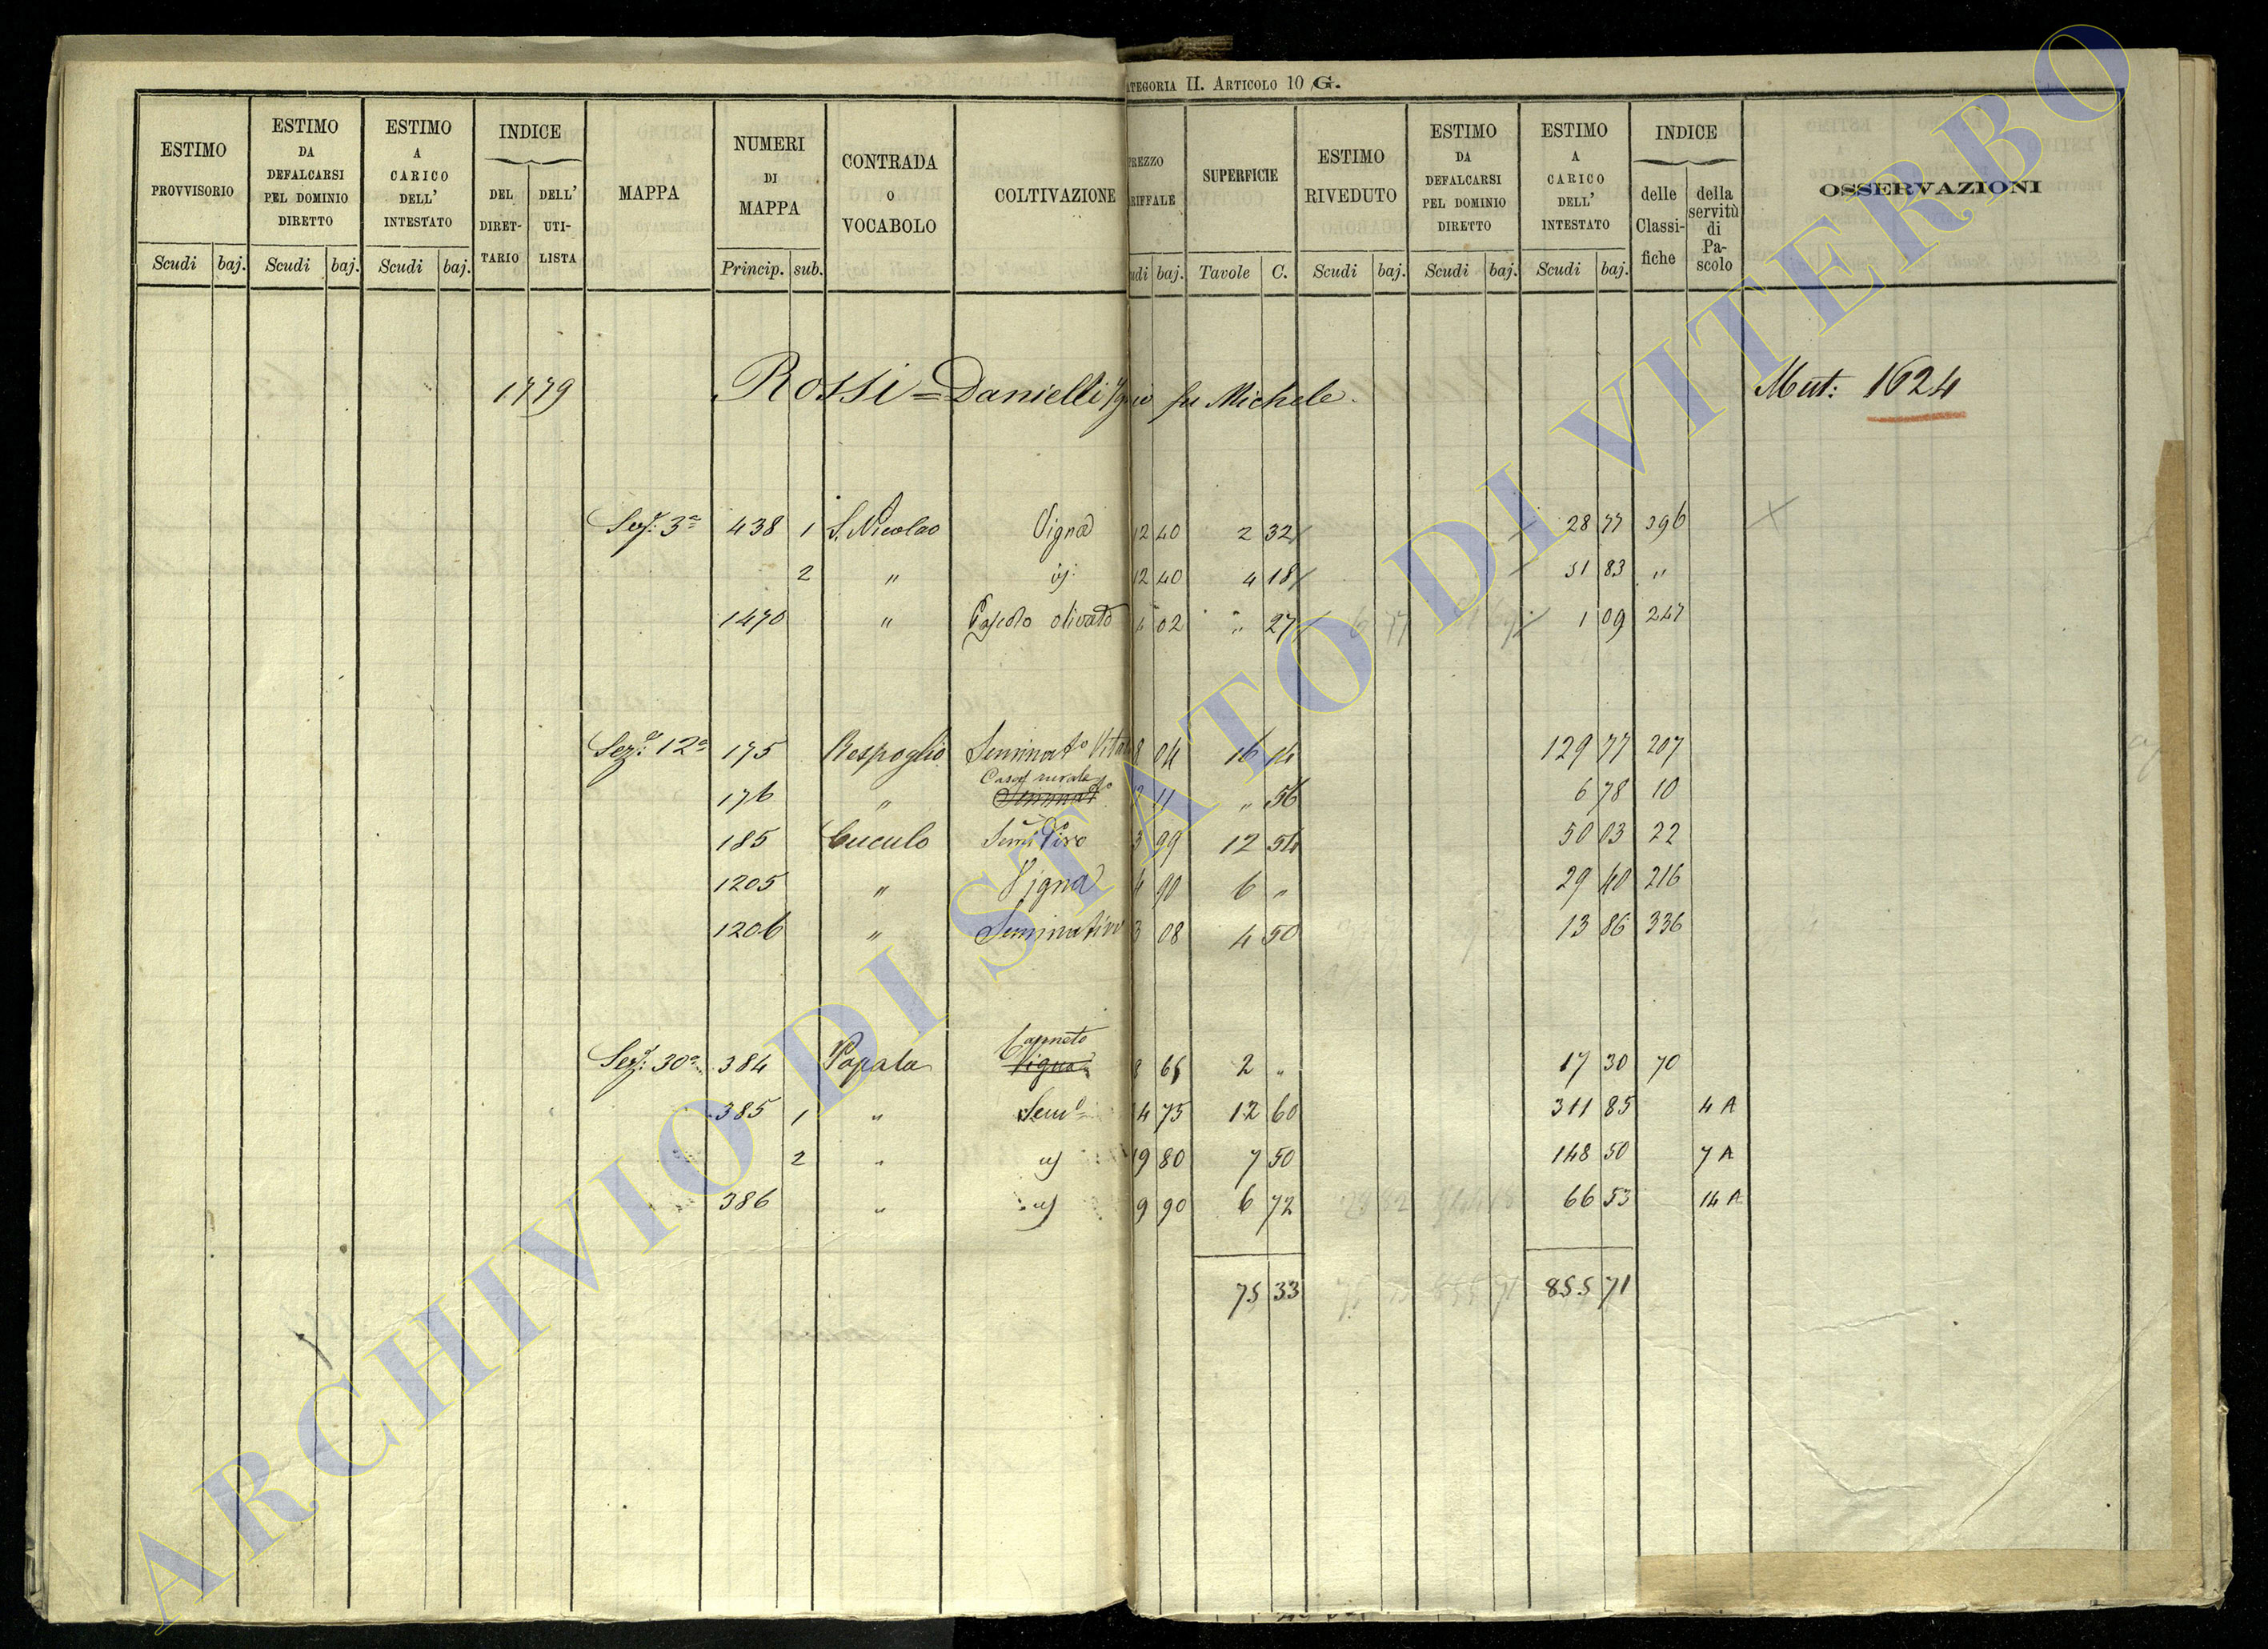 ATEGORIA II. ARTICOLO 10 G.
ESTIMO PROVVISORIO
ESTIMO DA DEFALCARSI PEL DOMINIO DIRETTO
ESTIMO A CARICO DELL' INTESTATO
INDICE
DEL DIRET-TARIO
DELL' UTI-LISTA
MAPPA
NUMERI DI MAPPA
CONTRADA O VOCABOLO
COLTIVAZIONE
PREZZO RIFFALE
SUPERFICIE
ESTIMO RIVEDUTO
ESTIMO DA DEFALCARSI PEL DOMINIO DIRETTO
ESTIMO A CARICO DELL' INTESTATO
INDICE
delle Classi-fiche
della servitù di Pa-scolo
OSSERVAZIONI
Scudi baj. Scudi baj. Scudi baj. Princip. sub. udi baj. Tavole C. Scudi baj. Scudi baj. Scudi baj.
1779 Rossi = Danielli fu Michele Mut: 1624
Sez: 3a 438 1 S. Nicolao Vigna 12 40 2 32 28 77 396
2 " id: 12 40 4 18 51 83 "
1470 " Pascolo olivato 4 02 " 27 1 09 247
Sez: 12a 175 Respoglio Seminato Vitato 8 04 16 14 129 77 207
176 " Casa rurale 12 11 " 56 6 78 10
185 Cuculo Semitivo 3 99 12 54 50 03 22
1205 " Vigna 4 90 6 " 29 40 216
1206 " Seminativo 3 08 4 50 13 86 336
Sez: 30a 384 Papala Canneto Vigna 8 65 2 " 17 30 70
385 1 " Semo 14 75 12 60 311 85 4 A
2 " id 19 80 7 50 148 50 7 A
386 " id 9 90 6 72 66 53 14 A
75 33 855 71
ARCHIVIO DI STATO DI VITERBO